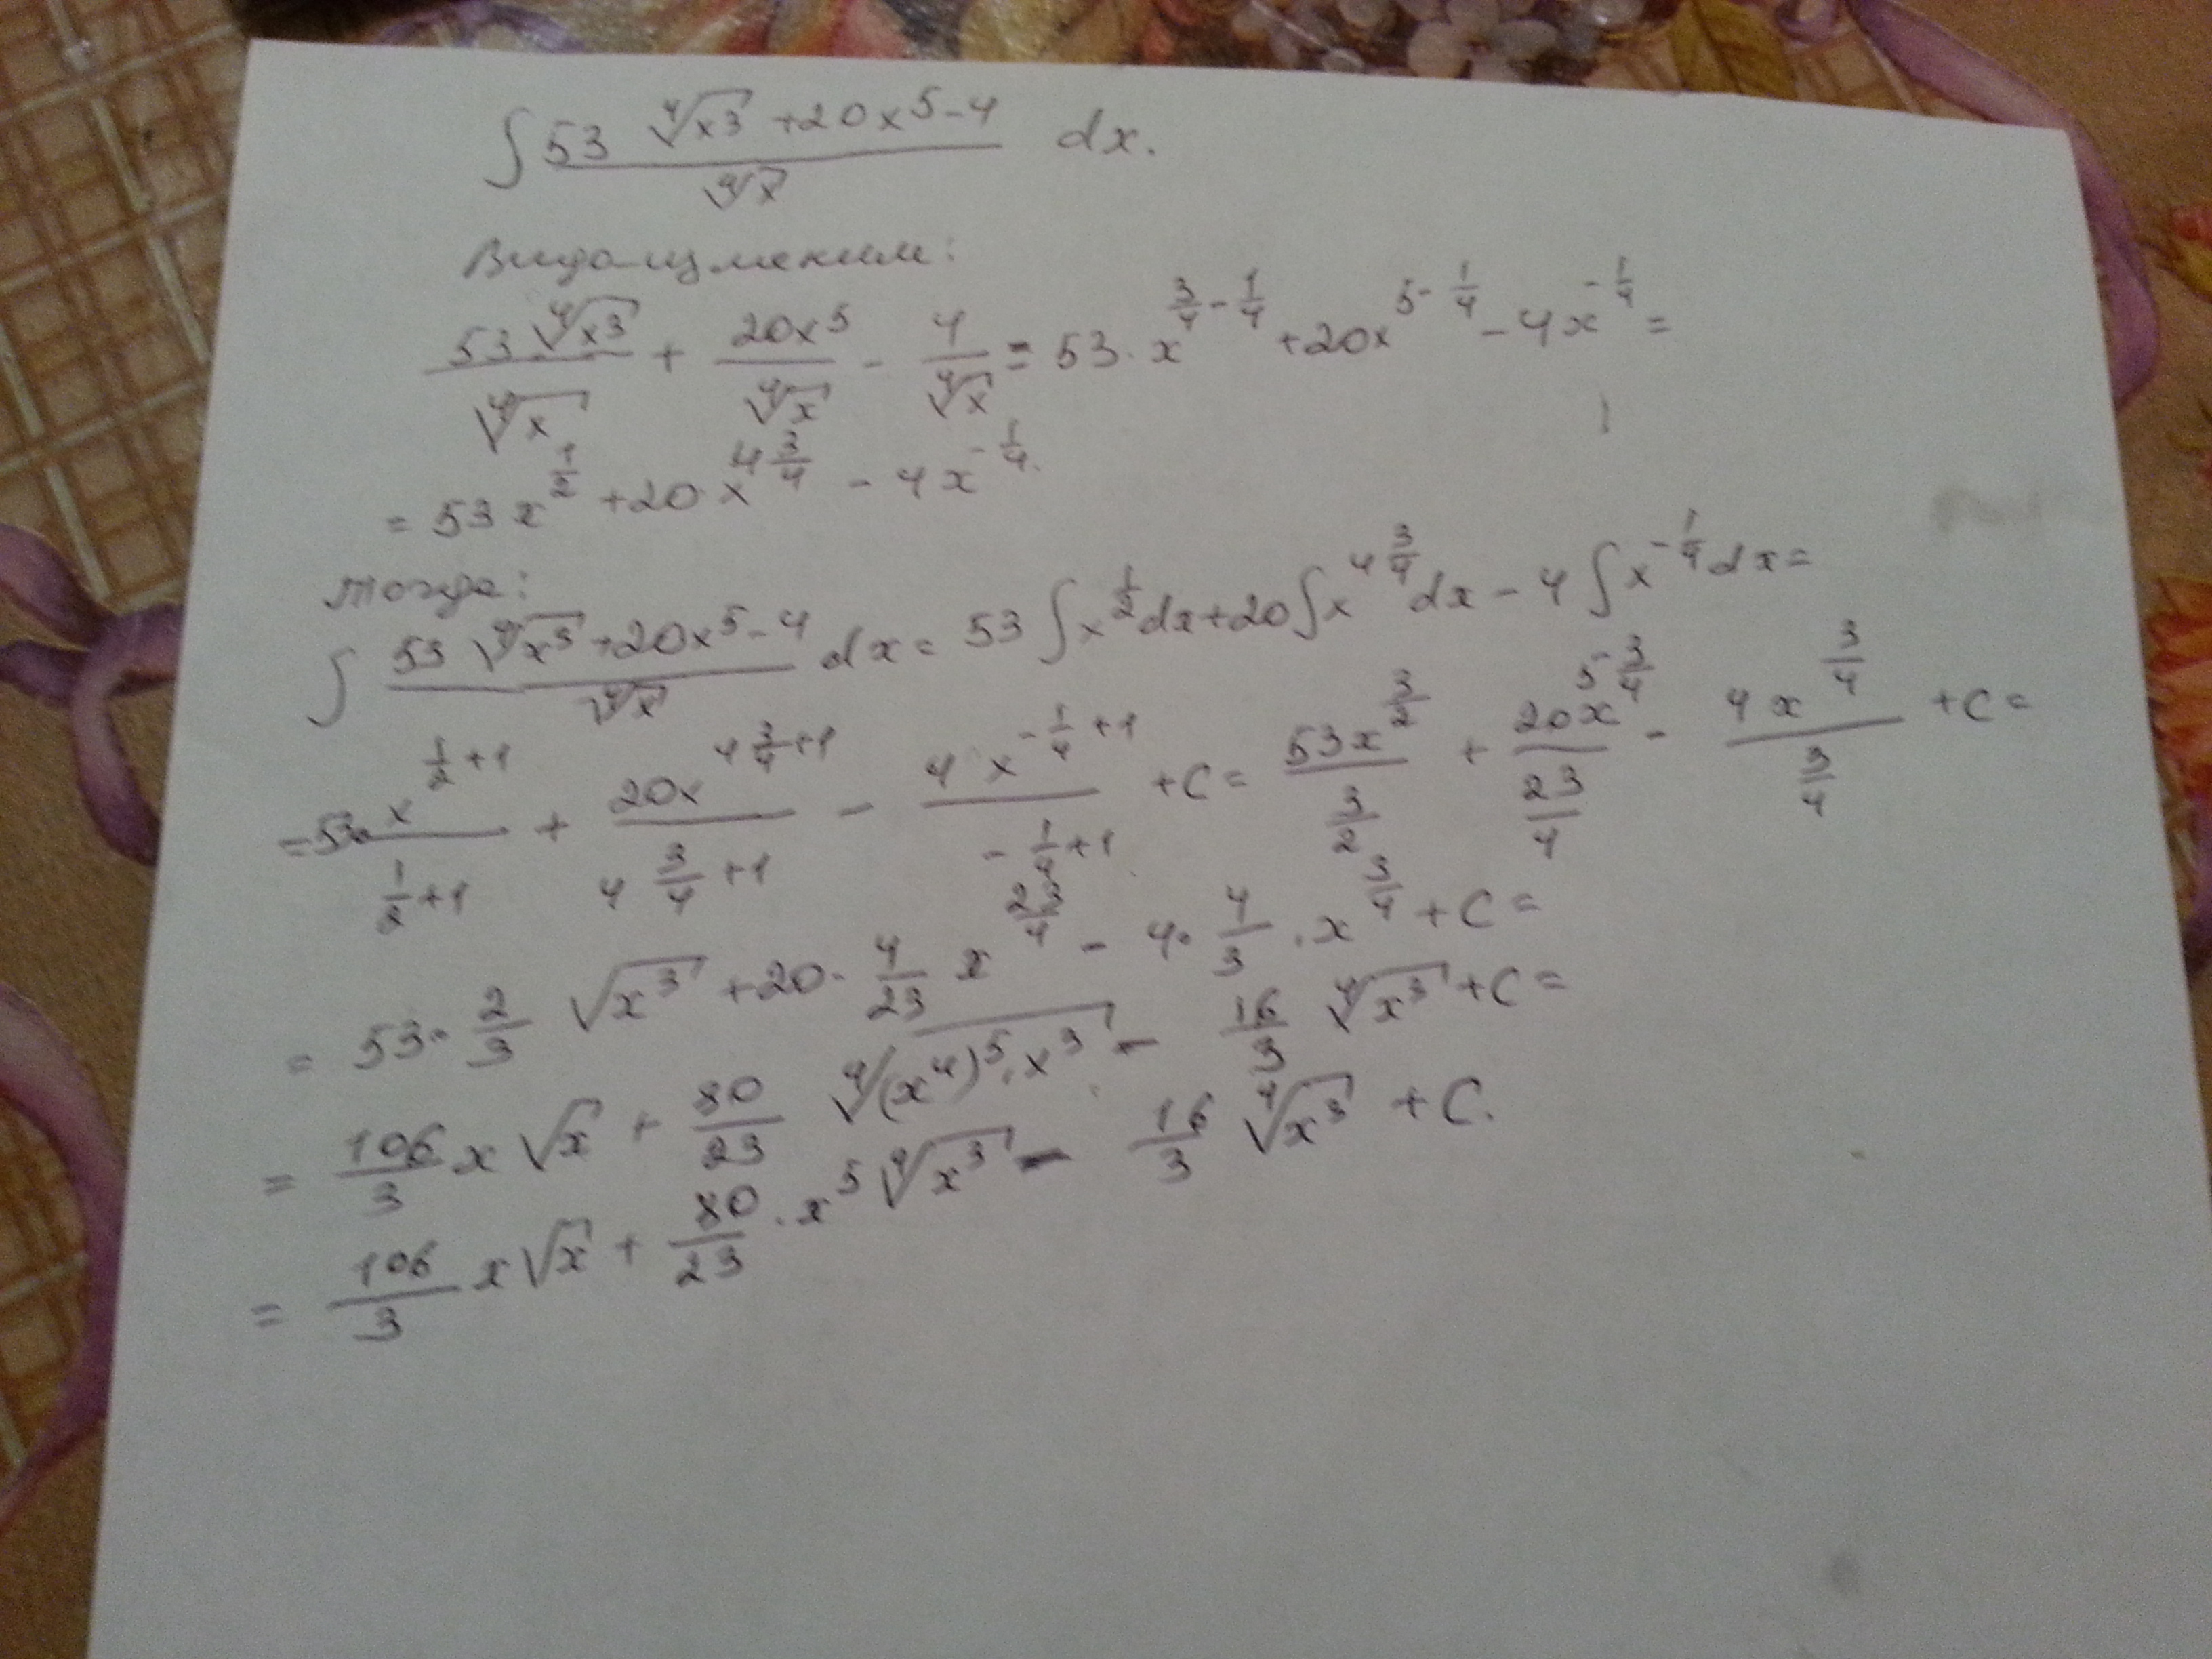 ∫ (53 ∜(x³) + 20x⁵ - 4)/∜x dx.
Видоизменим:
53∜(x³)/∜x + 20x⁵/∜x - 4/∜x = 53 · x^(3/4 - 1/4) + 20x^(5 - 1/4) - 4x^(-1/4) =
= 53x^(1/2) + 20·x^(4 3/4) - 4x^(-1/4).
Тогда:
∫ (53 ∜(x³) + 20x⁵ - 4)/∜x dx = 53 ∫ x^(1/2) dx + 20 ∫ x^(4 3/4) dx - 4 ∫ x^(-1/4) dx =
= 53· x^(1/2 + 1)/(1/2 + 1) + 20x^(4 3/4 + 1)/(4 3/4 + 1) - 4x^(-1/4 + 1)/(-1/4 + 1) + C = 53x^(3/2)/(3/2) + 20x^(5 3/4)/(23/4) - 4x^(3/4)/(3/4) + C =
= 53 · 2/3 √(x³) + 20 · 4/23 x^(23/4) - 4 · 4/3 · x^(3/4) + C =
= 106/3 x√x + 80/23 ∜((x⁴)⁵ · x³) - 16/3 ∜(x³) + C =
= 106/3 x√x + 80/23 · x⁵ ∜(x³) - 16/3 ∜(x³) + C.